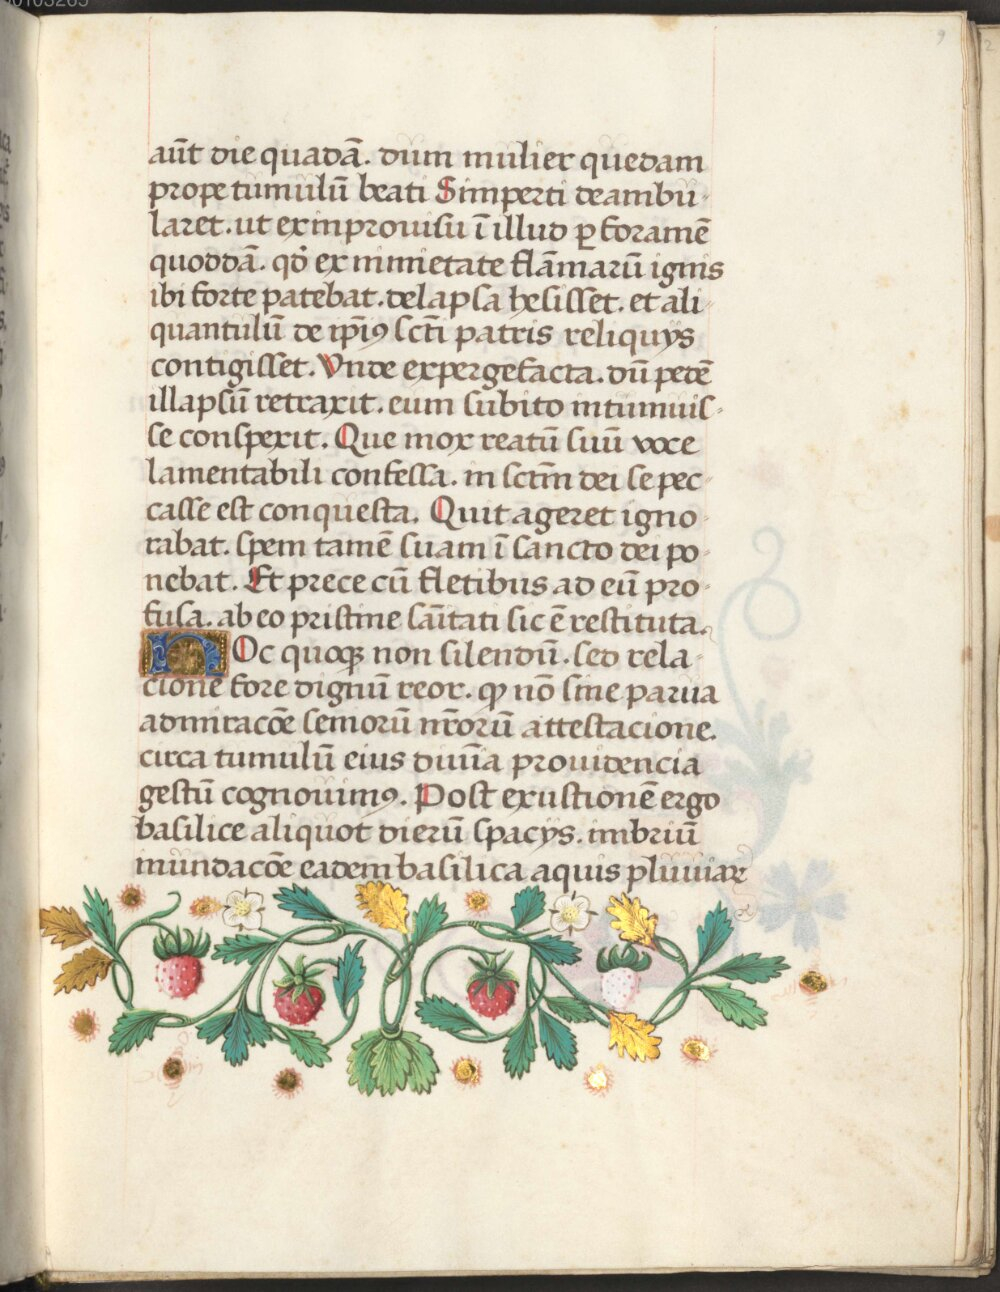 aūt die quadā. dum mulier quedam
prope tumulū beati Simperti deambu-
laret. ut ex improuisu ī illud ꝑ foramē
quoddā. qđ ex nimietate flāmarū ignis
ibi forte patebat. delapsa hesisset. et ali-
quantulū de ip̄iꝰ scti patris reliquijs
contigisset. Vnde expergefacta. dū pedē
illapsū retraxit. eum subito intumuis-
se conspexit. Que mox reatū suū voce
lamentabili confessa. in sctm̄ dei se pec-
casse est conquesta. Quit ageret igno-
rabat. spem tamē suam ī sancto dei po-
nebat. Et prece cū fletibus ad eū pro-
fusa. ab eo pristine sāitati sic ē restituta.
HOc quoqꝫ non silendū. sed rela-
cione fore dignū reor. ꝙ nō sine parua
admiracōe seniorū nr̄orū attestacione.
circa tumulū eius diuīa prouidencia
gestū cognouimꝰ. Post exustionē ergo
basilice aliquot dierū spacijs. imbriū
inundacōe eadem basilica aquis pluuiaꝝ
9